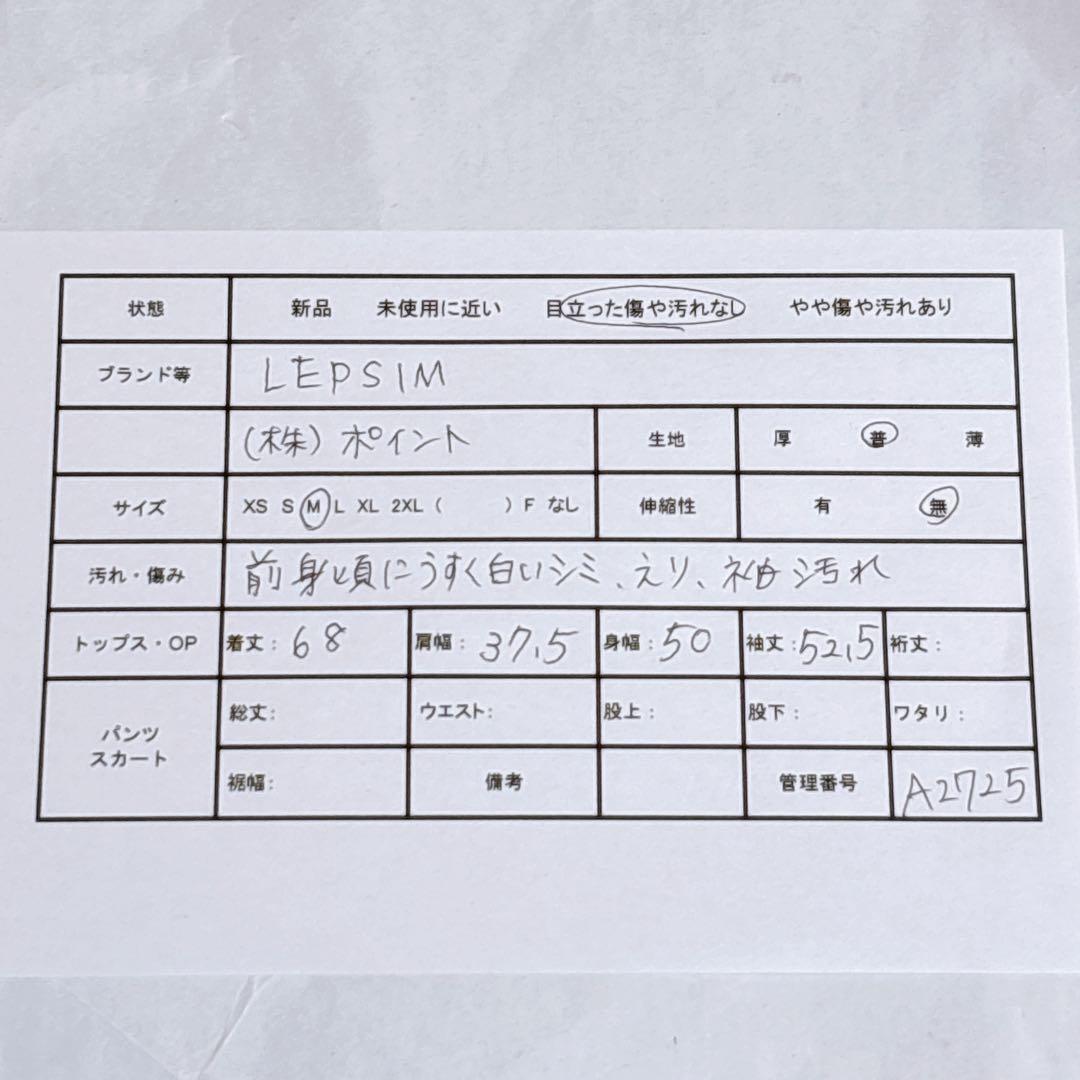 状態 新品 未使用に近い 目立った傷や汚れなし やや傷や汚れあり
ブランド等 LEPSIM
(株)ポイント 生地 厚 普 薄
サイズ XS S M L XL 2XL ( ) F なし 伸縮性 有 無
汚れ・傷み 前身頃にうすく白いシミ、えり、袖汚れ
トップス・OP 着丈:68 肩幅:37.5 身幅:50 袖丈:52.5 裄丈:
パンツ
スカート
総丈: ウエスト: 股上: 股下: ワタリ:
裾幅: 備考 管理番号 A2725